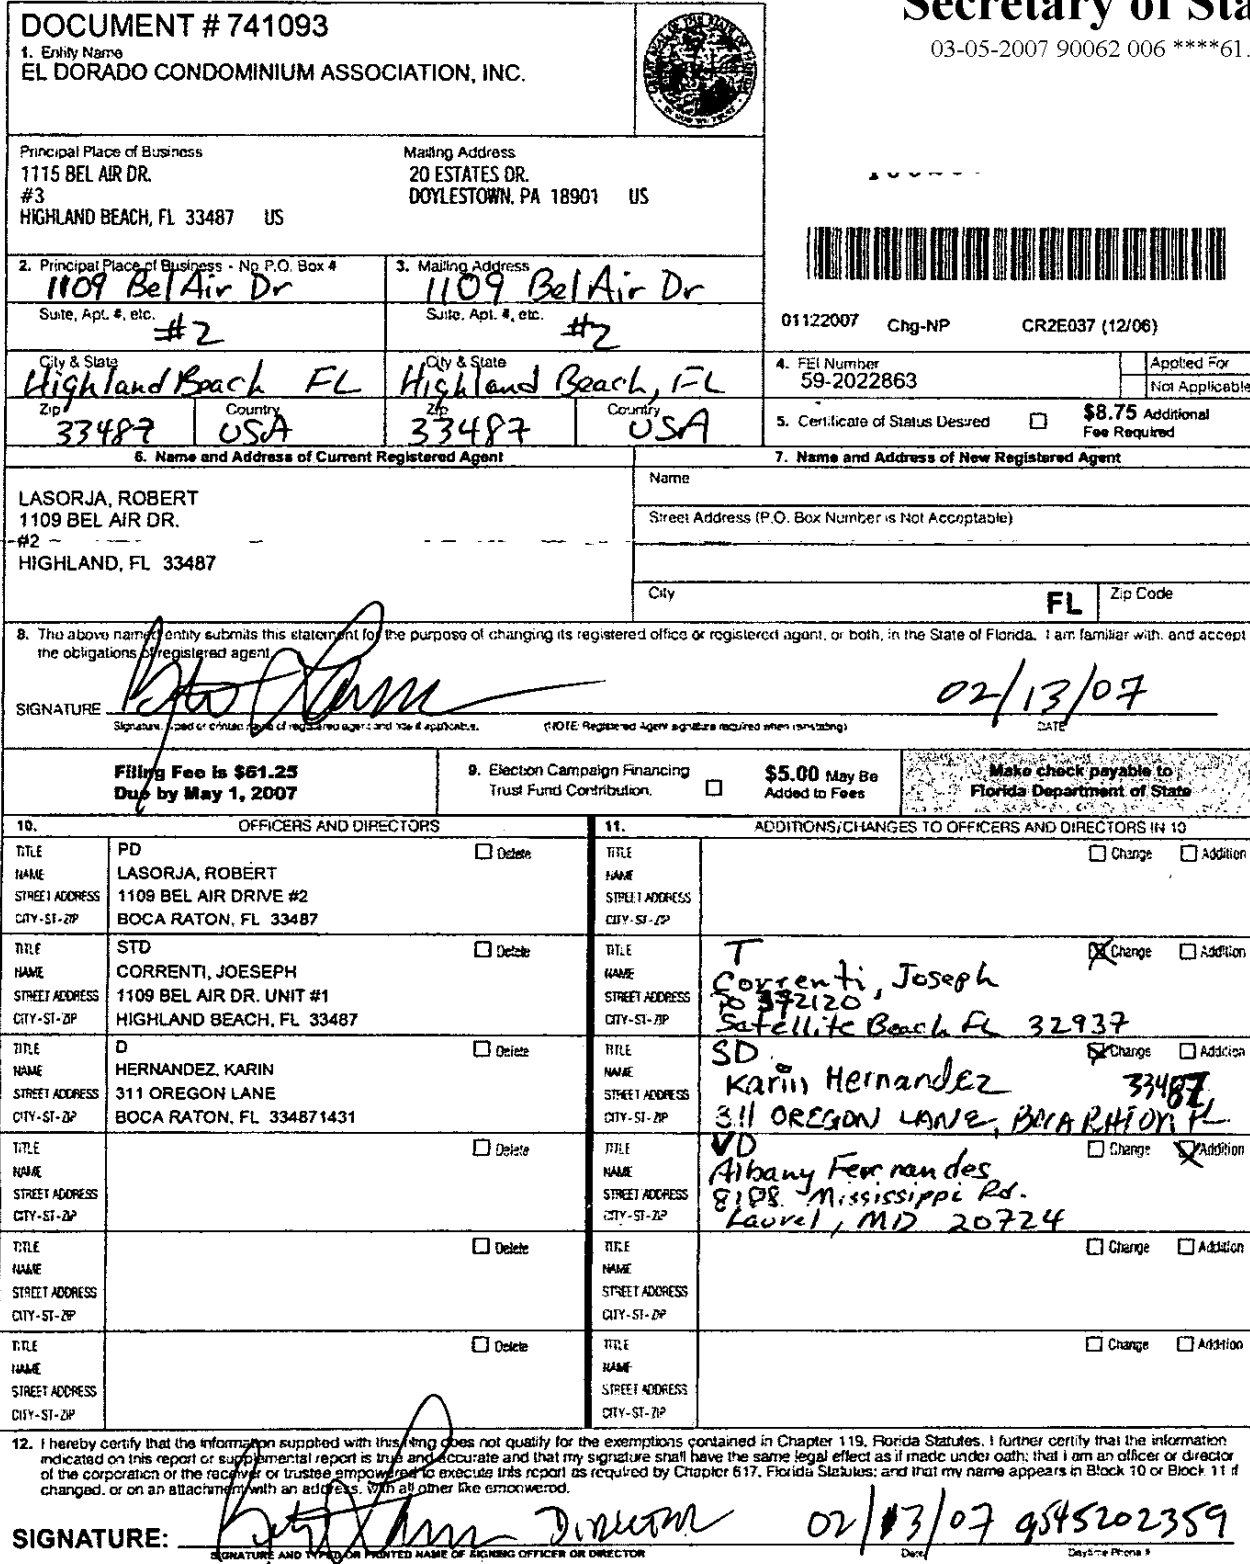 Secretary of Sta
03-05-2007 90062 006 ****61.
DOCUMENT # 741093
1. Entity Name
EL DORADO CONDOMINIUM ASSOCIATION, INC.
Principal Place of Business
1115 BEL AIR DR.
#3
HIGHLAND BEACH, FL 33487 US
Mailing Address
20 ESTATES DR.
DOYLESTOWN, PA 18901 US
2. Principal Place of Business - No P.O. Box #
1109 Bel Air Dr
Suite, Apt. #, etc.
#2
City & State
Highland Beach FL
Zip
33487
Country
USA
3. Mailing Address
1109 Bel Air Dr
Suite, Apt. #, etc.
#2
City & State
Highland Beach, FL
Zip
33487
Country
USA
01122007 Chg-NP CR2E037 (12/06)
4. FEI Number
59-2022863
Applied For
Not Applicable
5. Certificate of Status Desired
$8.75 Additional
Fee Required
6. Name and Address of Current Registered Agent
LASORJA, ROBERT
1109 BEL AIR DR.
#2
HIGHLAND, FL 33487
7. Name and Address of New Registered Agent
Name
Street Address (P.O. Box Number is Not Acceptable)
City
FL
Zip Code
8. The above named entity submits this statement for the purpose of changing its registered office or registered agent, or both, in the State of Florida. I am familiar with, and accept
the obligations of registered agent.
SIGNATURE
02/13/07
Signature, typed or printed name of registered agent and title if applicable.
(NOTE: Registered Agent signature required when reinstating)
DATE
Filing Fee is $61.25
Due by May 1, 2007
9. Election Campaign Financing
Trust Fund Contribution.
$5.00 May Be
Added to Fees
Make check payable to
Florida Department of State
10. OFFICERS AND DIRECTORS
TITLE PD Delete
NAME LASORJA, ROBERT
STREET ADDRESS 1109 BEL AIR DRIVE #2
CITY-ST-ZIP BOCA RATON, FL 33487
TITLE STD Delete
NAME CORRENTI, JOESEPH
STREET ADDRESS 1109 BEL AIR DR. UNIT #1
CITY-ST-ZIP HIGHLAND BEACH, FL 33487
TITLE D Delete
NAME HERNANDEZ, KARIN
STREET ADDRESS 311 OREGON LANE
CITY-ST-ZIP BOCA RATON, FL 334871431
TITLE Delete
NAME
STREET ADDRESS
CITY-ST-ZIP
TITLE Delete
NAME
STREET ADDRESS
CITY-ST-ZIP
TITLE Delete
NAME
STREET ADDRESS
CITY-ST-ZIP
11. ADDITIONS/CHANGES TO OFFICERS AND DIRECTORS IN 10
TITLE Change Addition
NAME
STREET ADDRESS
CITY-ST-ZIP
TITLE T Change Addition
NAME Correnti, Joseph
STREET ADDRESS PO 372120
CITY-ST-ZIP Satellite Beach FL 32937
TITLE SD Change Addition
NAME Karin Hernandez 33487
STREET ADDRESS
CITY-ST-ZIP 311 OREGON LANE, BOCA RATON FL
TITLE VD Change Addition
NAME Albany Fernandes
STREET ADDRESS 8108 Mississippi Rd.
CITY-ST-ZIP Laurel, MD 20724
TITLE Change Addition
NAME
STREET ADDRESS
CITY-ST-ZIP
TITLE Change Addition
NAME
STREET ADDRESS
CITY-ST-ZIP
12. I hereby certify that the information supplied with this filing does not qualify for the exemptions contained in Chapter 119, Florida Statutes. I further certify that the information
indicated on this report or supplemental report is true and accurate and that my signature shall have the same legal effect as if made under oath; that I am an officer or director
of the corporation or the receiver or trustee empowered to execute this report as required by Chapter 617, Florida Statutes; and that my name appears in Block 10 or Block 11 if
changed, or on an attachment with an address, with all other like empowered.
SIGNATURE: Director 02/13/07 9545202359
SIGNATURE AND TYPED OR PRINTED NAME OF SIGNING OFFICER OR DIRECTOR Date Daytime Phone #